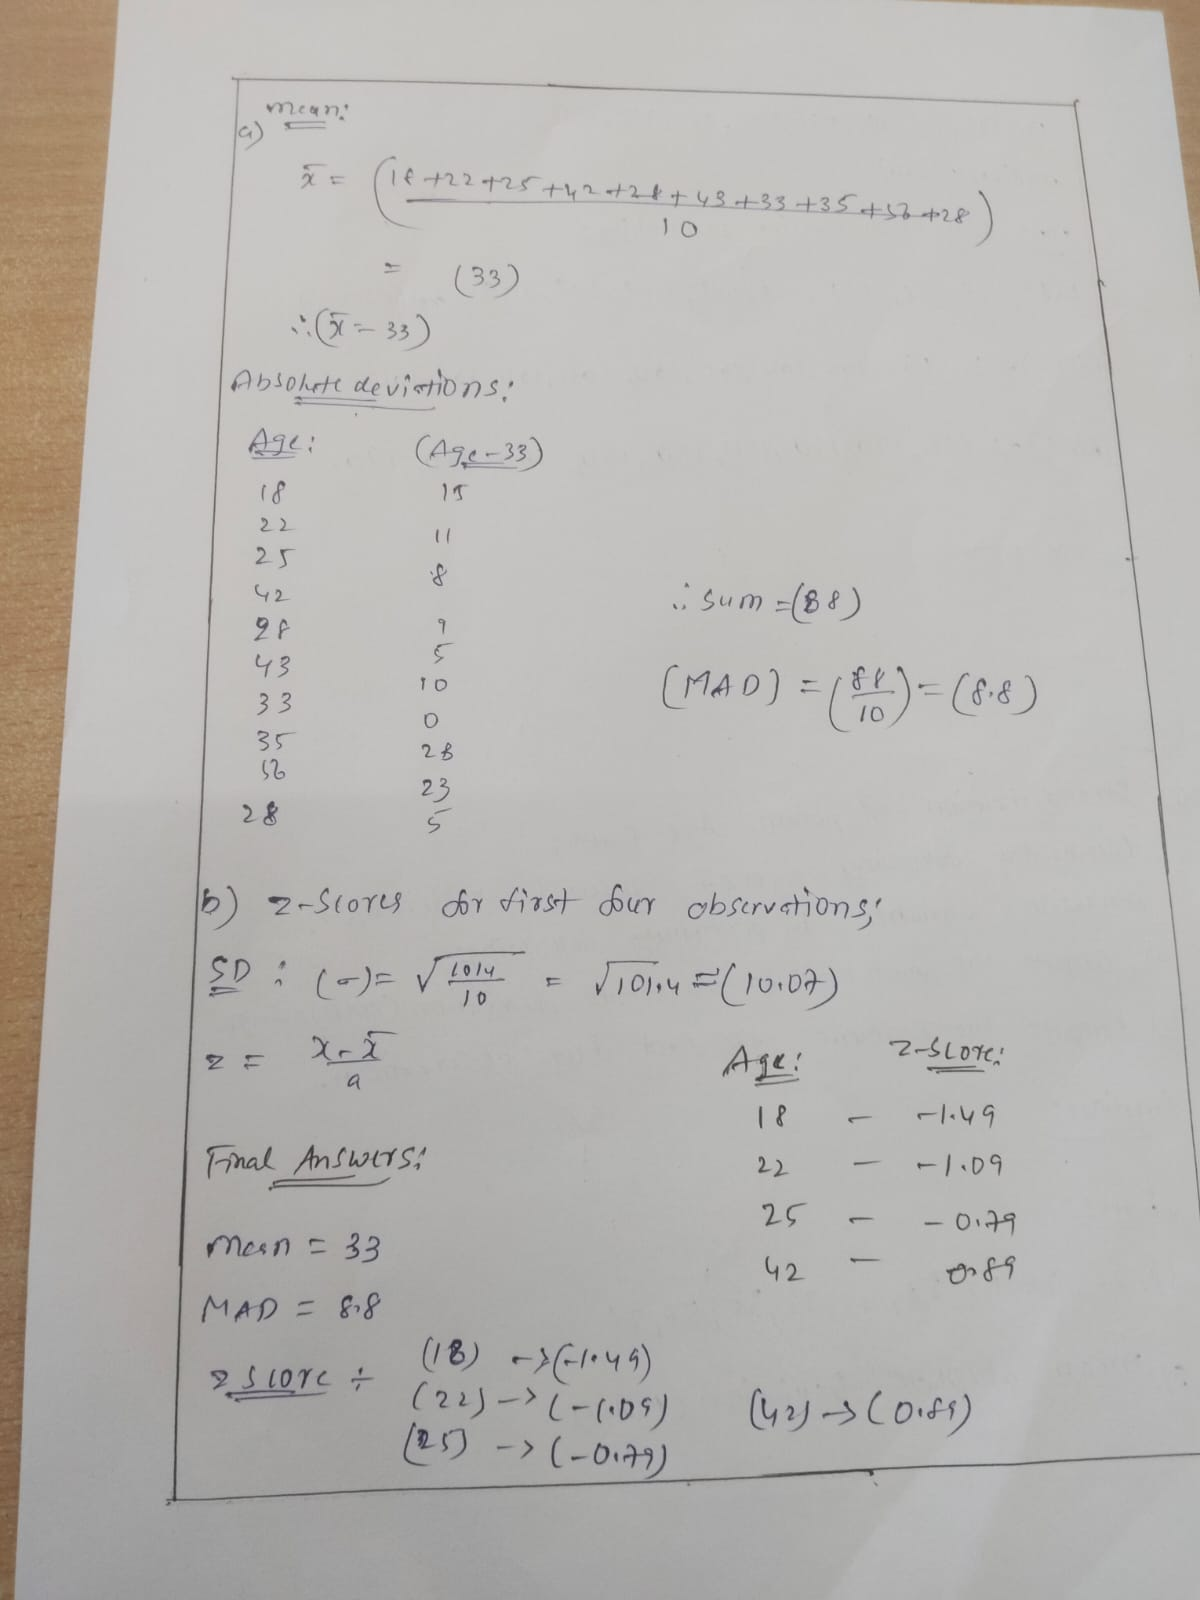 a) Mean:
x̄ = (18+22+25+42+28+43+33+35+56+28 / 10)
= (33)
∴(x̄ = 33)
Absolute deviations:
Age: (Age-33)
18 15
22 11
25 8
42 9
28 5
43 10
33 0
35 28
56 23
28 5
∴ sum = (88)
(MAD) = (88/10) = (8.8)
b) z-scores for first four observations;
SD : (σ)= √1014/10 = √101.4 ≈ (10.07)
z = x-x̄/a
Age: z-score:
18 - -1.49
22 - -1.09
25 - -0.79
42 - 0.89
Final Answers:
mean = 33
MAD = 8.8
z score ÷ (18) -> (-1.49)
(22) -> (-1.09)
(25) -> (-0.79)
(42) -> (0.89)